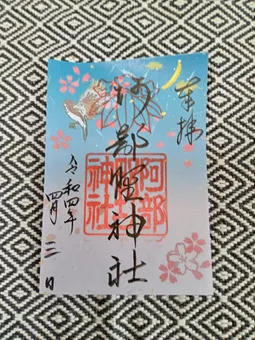 奉拝
阿部野神社
阿部
神社
令和四年
四月
三日